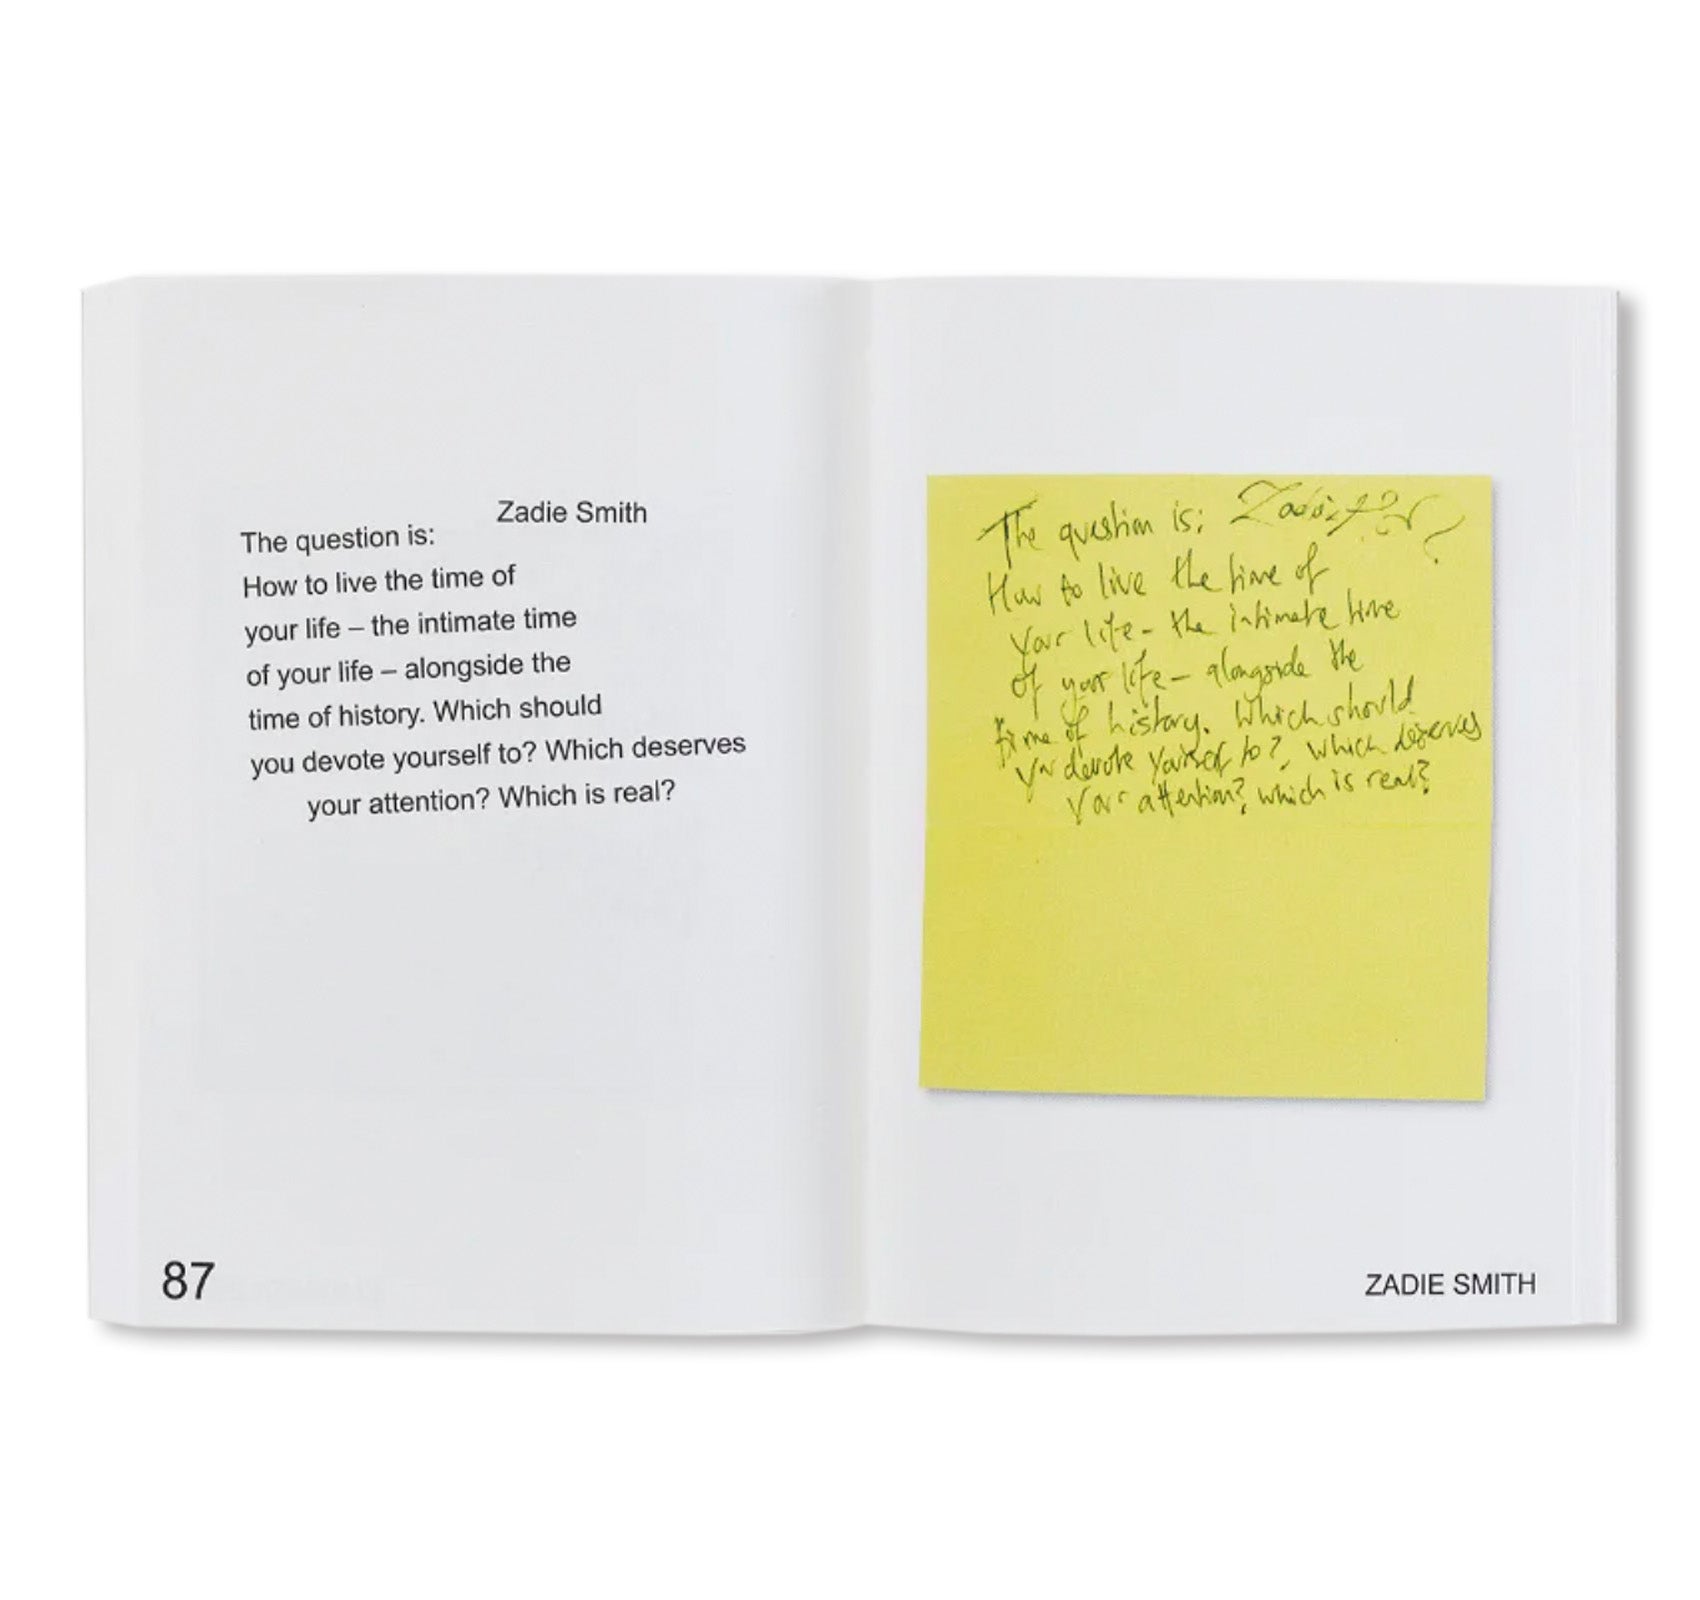 Zadie Smith
The question is:
How to live the time of
your life – the intimate time
of your life – alongside the
time of history. Which should
you devote yourself to? Which deserves
your attention? Which is real?
87
The question is: Zadie
How to live the time of
your life – the intimate time
of your life – alongside the
time of history. Which should
you devote yourself to? which deserves
your attention? which is real?
ZADIE SMITH